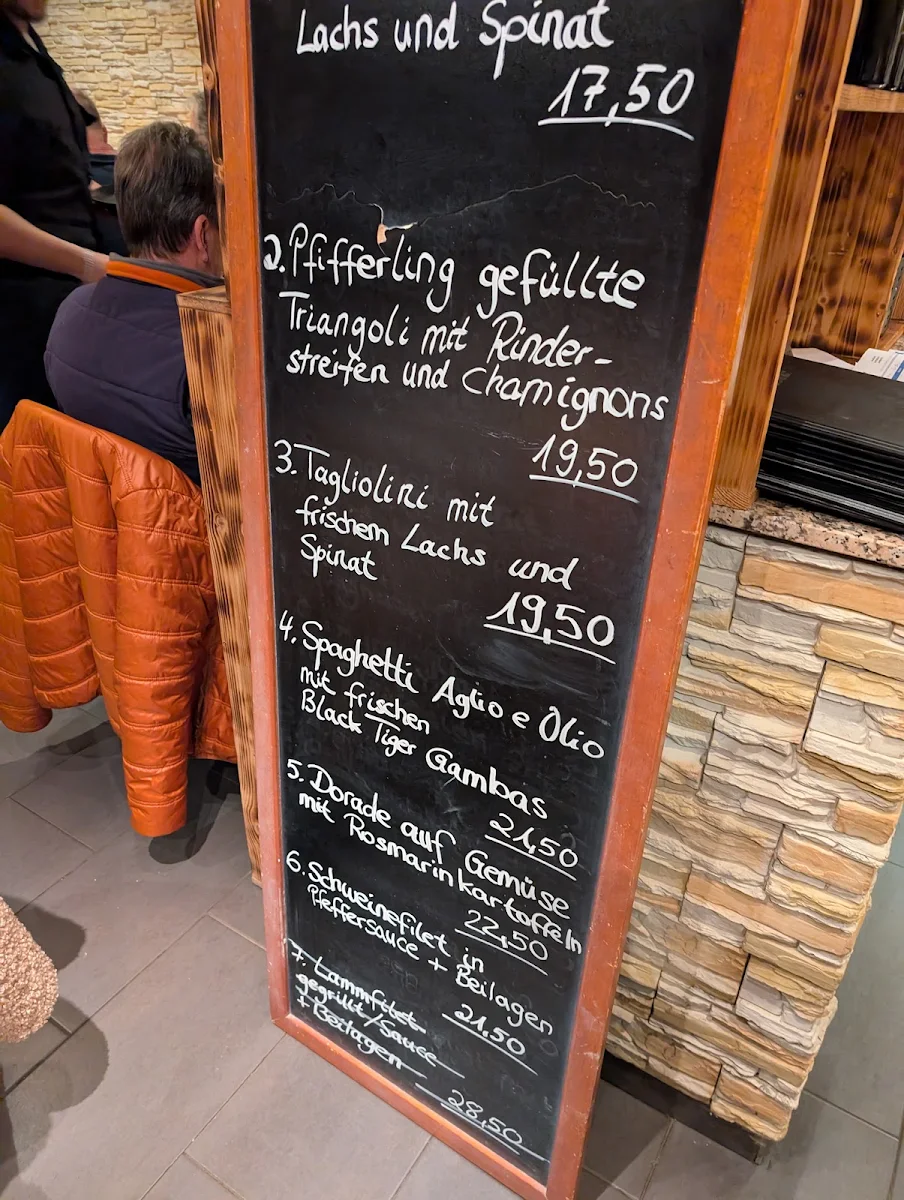 Lachs und Spinat
17,50
2. Pfifferling gefüllte
Triangoli mit Rinder-
streifen und Chamignons
19,50
3. Tagliolini mit
frischem Lachs und
Spinat
19,50
4. Spaghetti Aglio e Olio
mit frischen
Black Tiger Gambas
21,50
5. Dorade auf Gemüse
mit Rosmarinkartoffeln
22,50
6. Schweinefilet in
Pfeffersauce + Beilagen
21,50
7. Lammfilet
gegrillt/Sauce
+ Beilagen
28,50